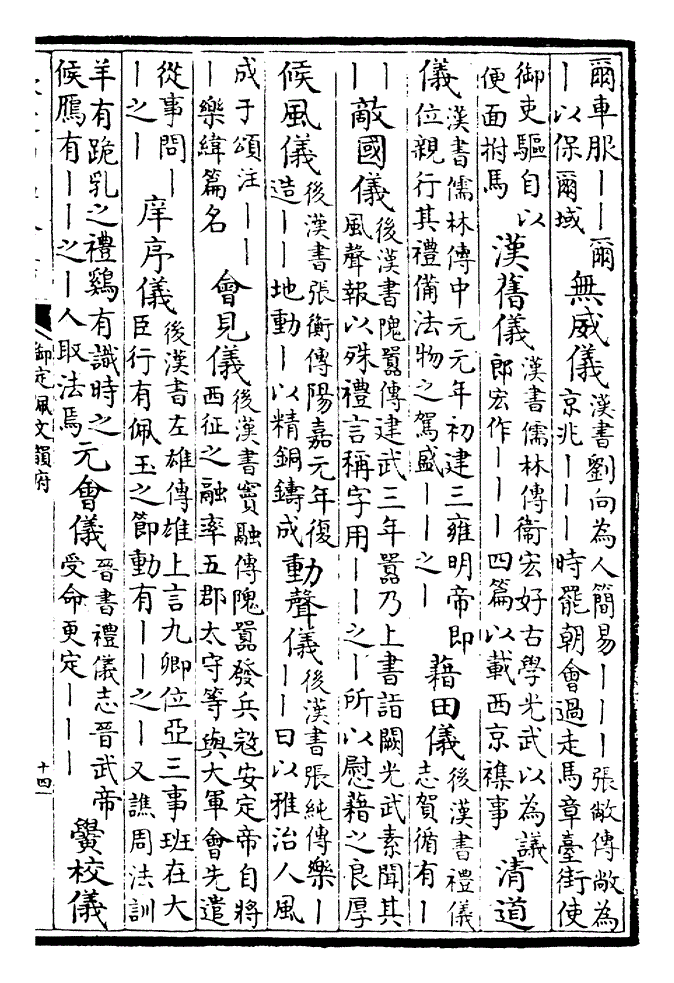 爾車服｜｜爾
｜以保爾域
無威儀
漢書劉向為人簡易｜｜｜張敞傳敞為
京兆｜｜｜時罷朝會過走馬章臺街使
御吏驅自以
便面拊馬
漢舊儀
漢書儒林傳衞宏好古學光武以為議
郎宏作｜｜｜四篇以載西京襍事
清道
儀
漢書儒林傳中元元年初建三雍明帝即
位親行其禮備法物之駕盛｜｜之｜
藉田儀
後漢書禮儀
志賀循有｜
｜
｜
敵國儀
後漢書隗囂傳建武三年囂乃上書詣闕光武素聞其
風聲報以殊禮言稱字用｜｜之｜所以慰藉之良厚
候風儀
後漢書張衡傳陽嘉元年復
造｜｜地動｜以精銅鑄成
動聲儀
後漢書張純傳樂｜
｜｜曰以雅治人風
成于頌注｜｜
｜樂緯篇名
會見儀
後漢書竇融傳隗囂發兵寇安定帝自將
西征之融率五郡太守等與大軍會先遣
從事問｜
｜之｜
庠序儀
後漢書左雄傳雄上言九卿位亞三事班在大
臣行有佩玉之節動有｜｜之｜又譙周法訓
羊有跪乳之禮鷄有識時之
候鴈有｜｜之｜人取法焉
元會儀
晉書禮儀志晉武帝
受命更定｜｜｜
黌校儀
御定佩文韻府
十四